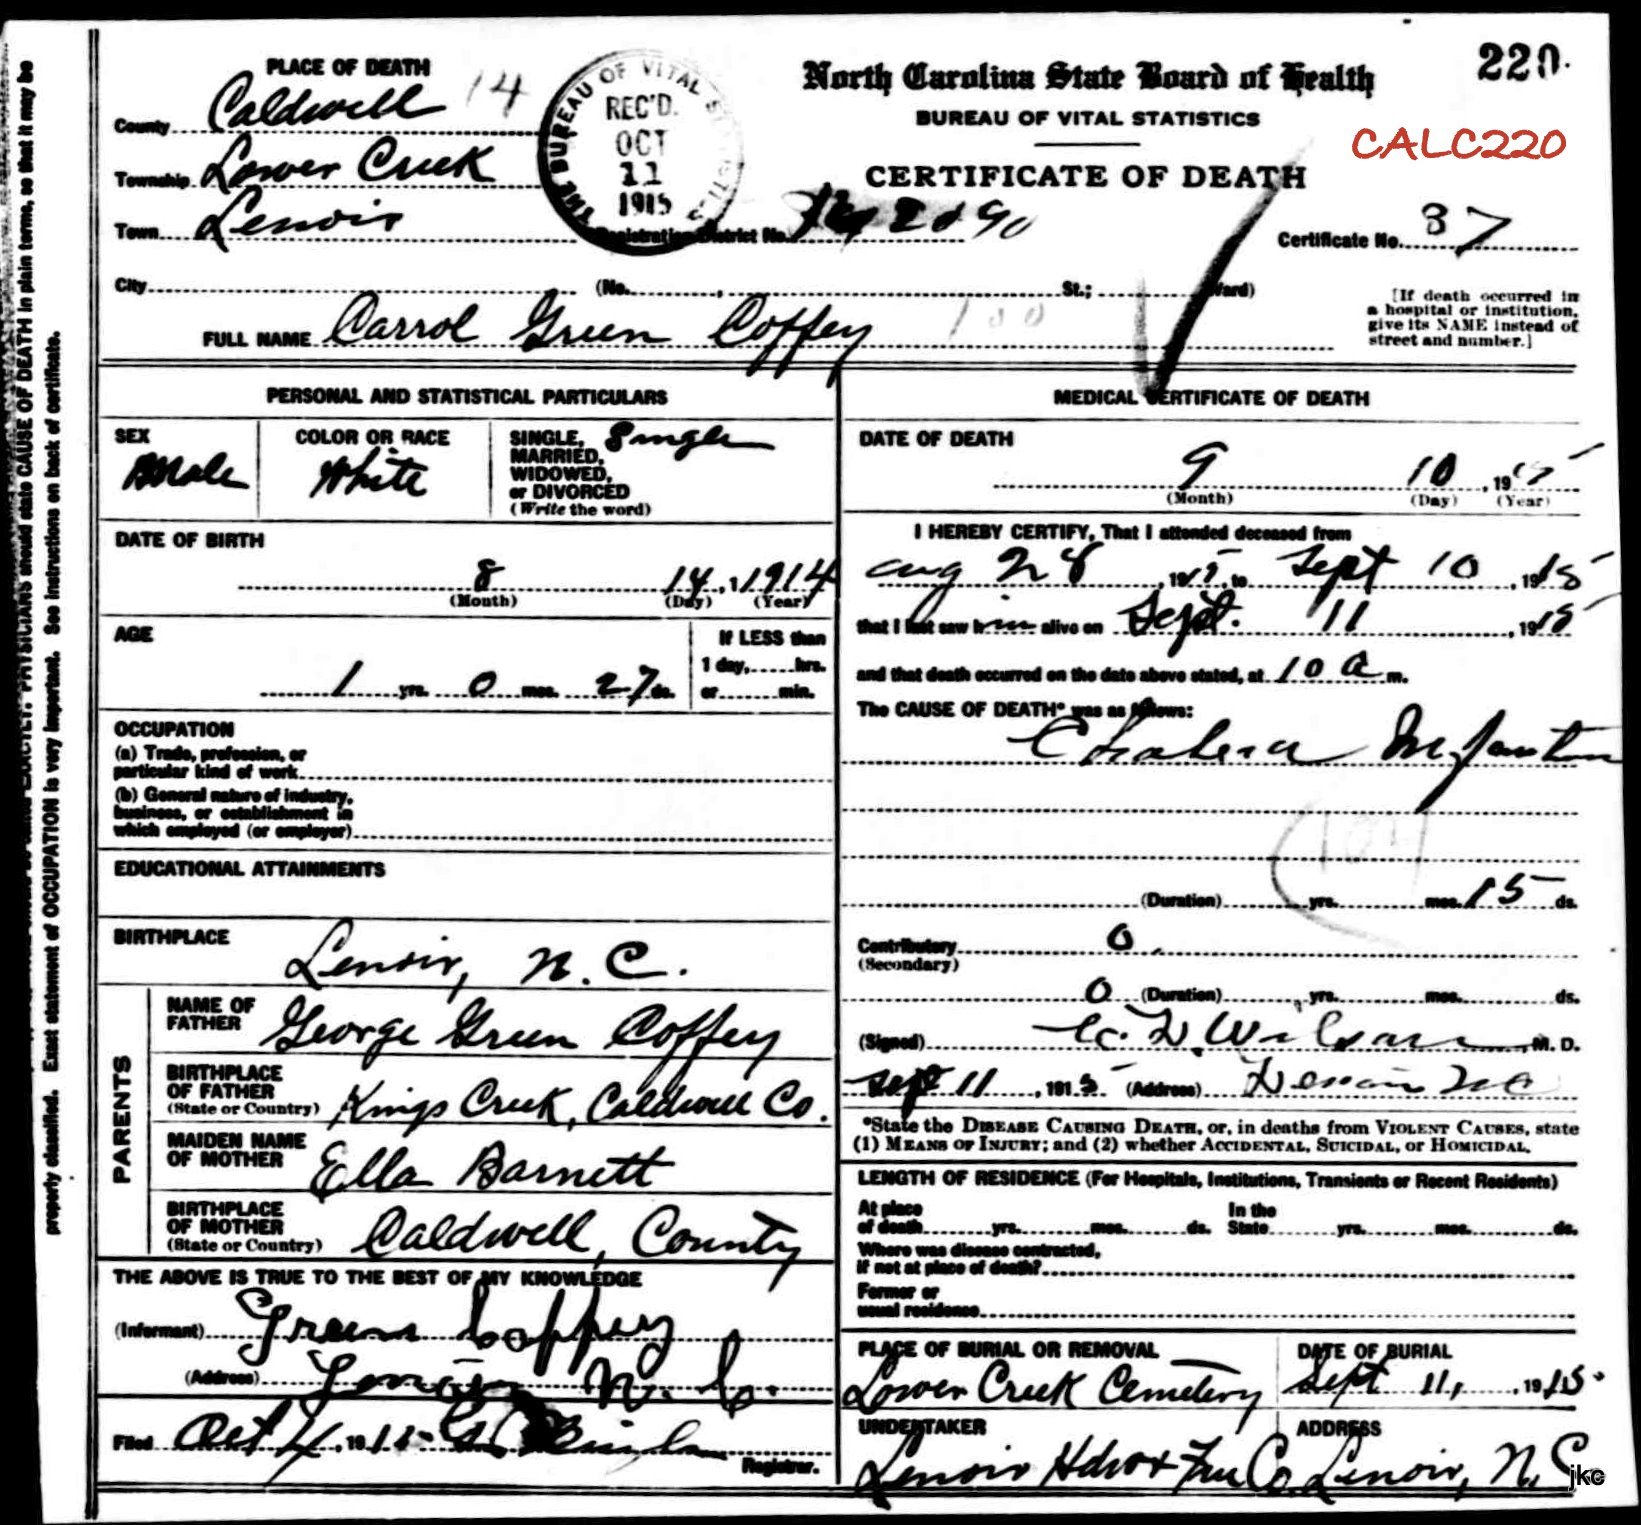 220.
North Carolina State Board of Health
BUREAU OF VITAL STATISTICS
CALC220
CERTIFICATE OF DEATH
PLACE OF DEATH
14
THE BUREAU OF VITAL STATISTICS
REC'D.
OCT
11
1915
County Caldwell
Township Lower Creek
Town Lenoir
Registration District No. 2090
Certificate No. 37
City (No. , St.; Ward)
[If death occurred in
a hospital or institution,
give its NAME instead of
street and number.]
FULL NAME Carrol Green Coffey
100
PERSONAL AND STATISTICAL PARTICULARS
SEX
Male
COLOR OR RACE
White
SINGLE, Single
MARRIED,
WIDOWED,
or DIVORCED
(Write the word)
DATE OF BIRTH
8 14, 1914
(Month) (Day) (Year)
AGE
1 yrs. 0 mos. 27 ds.
If LESS than
1 day, hrs.
or min.
OCCUPATION
(a) Trade, profession, or
particular kind of work
(b) General nature of industry,
business, or establishment in
which employed (or employer)
EDUCATIONAL ATTAINMENTS
BIRTHPLACE
Lenoir, N.C.
PARENTS
NAME OF
FATHER George Green Coffey
BIRTHPLACE
OF FATHER
(State or Country) Kings Creek, Caldwell Co.
MAIDEN NAME
OF MOTHER Ella Barnett
BIRTHPLACE
OF MOTHER
(State or Country) Caldwell, County
THE ABOVE IS TRUE TO THE BEST OF MY KNOWLEDGE
(Informant) Green Coffey
(Address) Lenoir N. C.
Filed Oct 4, 1915
Registrar.
MEDICAL CERTIFICATE OF DEATH
DATE OF DEATH
9 10, 1915
(Month) (Day) (Year)
I HEREBY CERTIFY, That I attended deceased from
Aug 28, 1915, to Sept 10, 1915
that I last saw him alive on Sept. 11, 1915
and that death occurred on the date above stated, at 10 a m.
The CAUSE OF DEATH* was as follows:
Cholera Infantum
104
(Duration) yrs. mos. 15 ds.
Contributory 0.
(Secondary)
0 (Duration) yrs. mos. ds.
(Signed) Wilson, M. D.
Sept 11, 1915 (Address) Lenoir NC
*State the DISEASE CAUSING DEATH, or, in deaths from VIOLENT CAUSES, state
(1) MEANS OF INJURY; and (2) whether ACCIDENTAL, SUICIDAL, or HOMICIDAL.
LENGTH OF RESIDENCE (For Hospitals, Institutions, Transients or Recent Residents)
At place
of death yrs. mos. ds.
In the
State yrs. mos. ds.
Where was disease contracted,
if not at place of death?
Former or
usual residence
PLACE OF BURIAL OR REMOVAL
Lower Creek Cemetery
DATE OF BURIAL
Sept 11, 1915.
UNDERTAKER
Lenoir Hdw & Fur Co.
ADDRESS
Lenoir, N.C.
jkc
PHYSICIANS should state CAUSE OF DEATH in plain terms, so that it may be
properly classified. Exact statement of OCCUPATION is very important. See instructions on back of certificate.